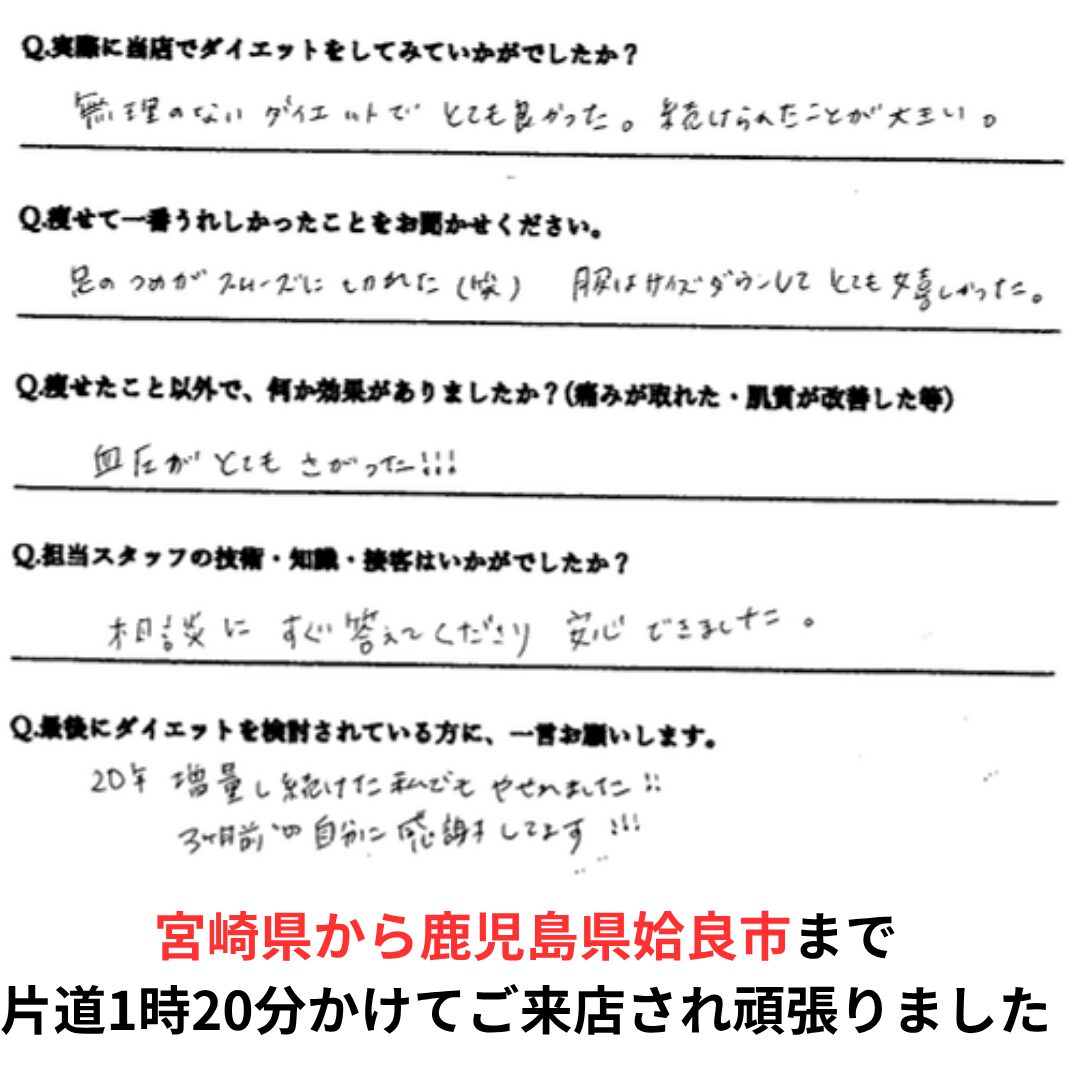 Q.実際に当店でダイエットをしてみていかがでしたか？
無理のない ダイエットで とても良かった。続けられたことが大きい。
Q.痩せて一番うれしかったことをお聞かせください。
足のつめがスムーズに切れた（笑） 服はサイズダウンして とても嬉しかった。
Q.痩せたこと以外で、何か効果がありましたか？(痛みが取れた・肌質が改善した等)
血圧が とても さがった!!!
Q.担当スタッフの技術・知識・接客はいかがでしたか？
相談に すぐ答えてくださり 安心できました。
Q.最後にダイエットを検討されている方に、一言お願いします。
20年 増量し続けた私でも やせれました!!
3ヶ月前の自分に感謝してます!!!
宮崎県から鹿児島県姶良市まで
片道1時20分かけてご来店され頑張りました